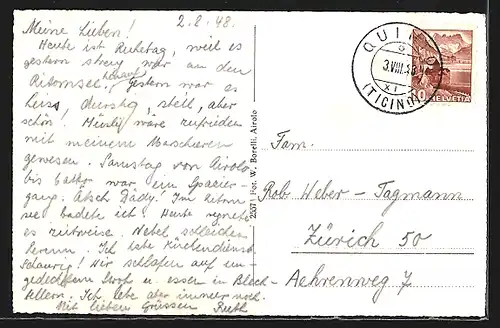 2.8.48.
Meine Lieben!
Heute ist Ruhetag, weil es
gestern streng war an den
Ritomsee. hinauf Gestern war es
heiss, durstig, steil, aber
schön! Müsly wäre zufrieden
mit meinem
gewesen. Samstag von Airolo
bis war ein Spazier-
gang. Ätsch Dädy! Im Ritom
see badete ich. Heute regnete
es zeitweise. Nebel schleichen
herum. Ich habe Küchendienst.
Schaurig! Wir schlafen auf un-
gedecktem Stroh u. essen in Blech-
tellern. Ich lebe aber immer noch.
Mit lieben Grüssen Ruth
2057 Fot. W. Borelli, Airolo
QUINTO
3.VIII.48
XI
(TICINO)
HELVETIA
Fam.
Rob. Weber - Tagmann
Zürich 50
Aehrenweg 7